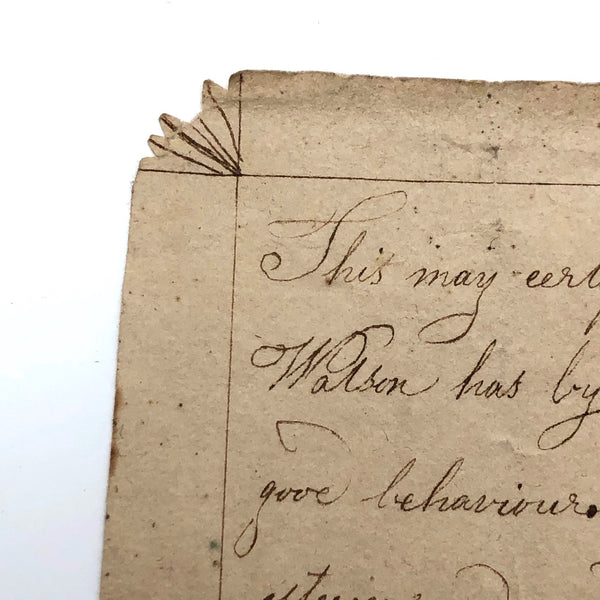 This may cert
Watson has by
good behaviour.